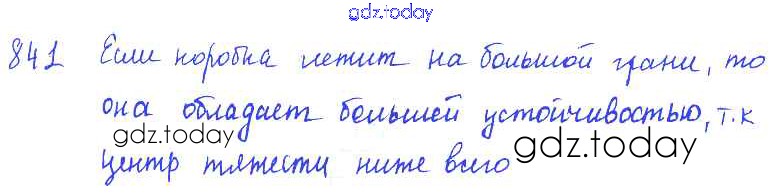 gdz.today
841 Если коробка летит на большой грани, то
она обладает большей устойчивостью, т.к
gdz.today
центр тяжести ниже всего
gdz.today